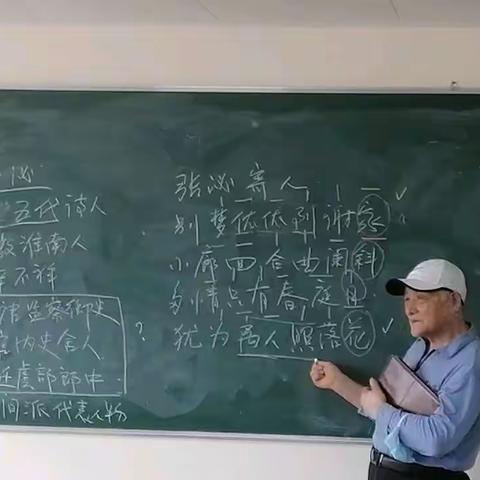 泌
五代诗人
淮南人
不祥
监察御史
内史舍人
任虞部郎中
间派代表人物
张泌寄人
别梦依依到谢家
小廊回合曲阑斜
多情只有春庭月
犹为离人照落花